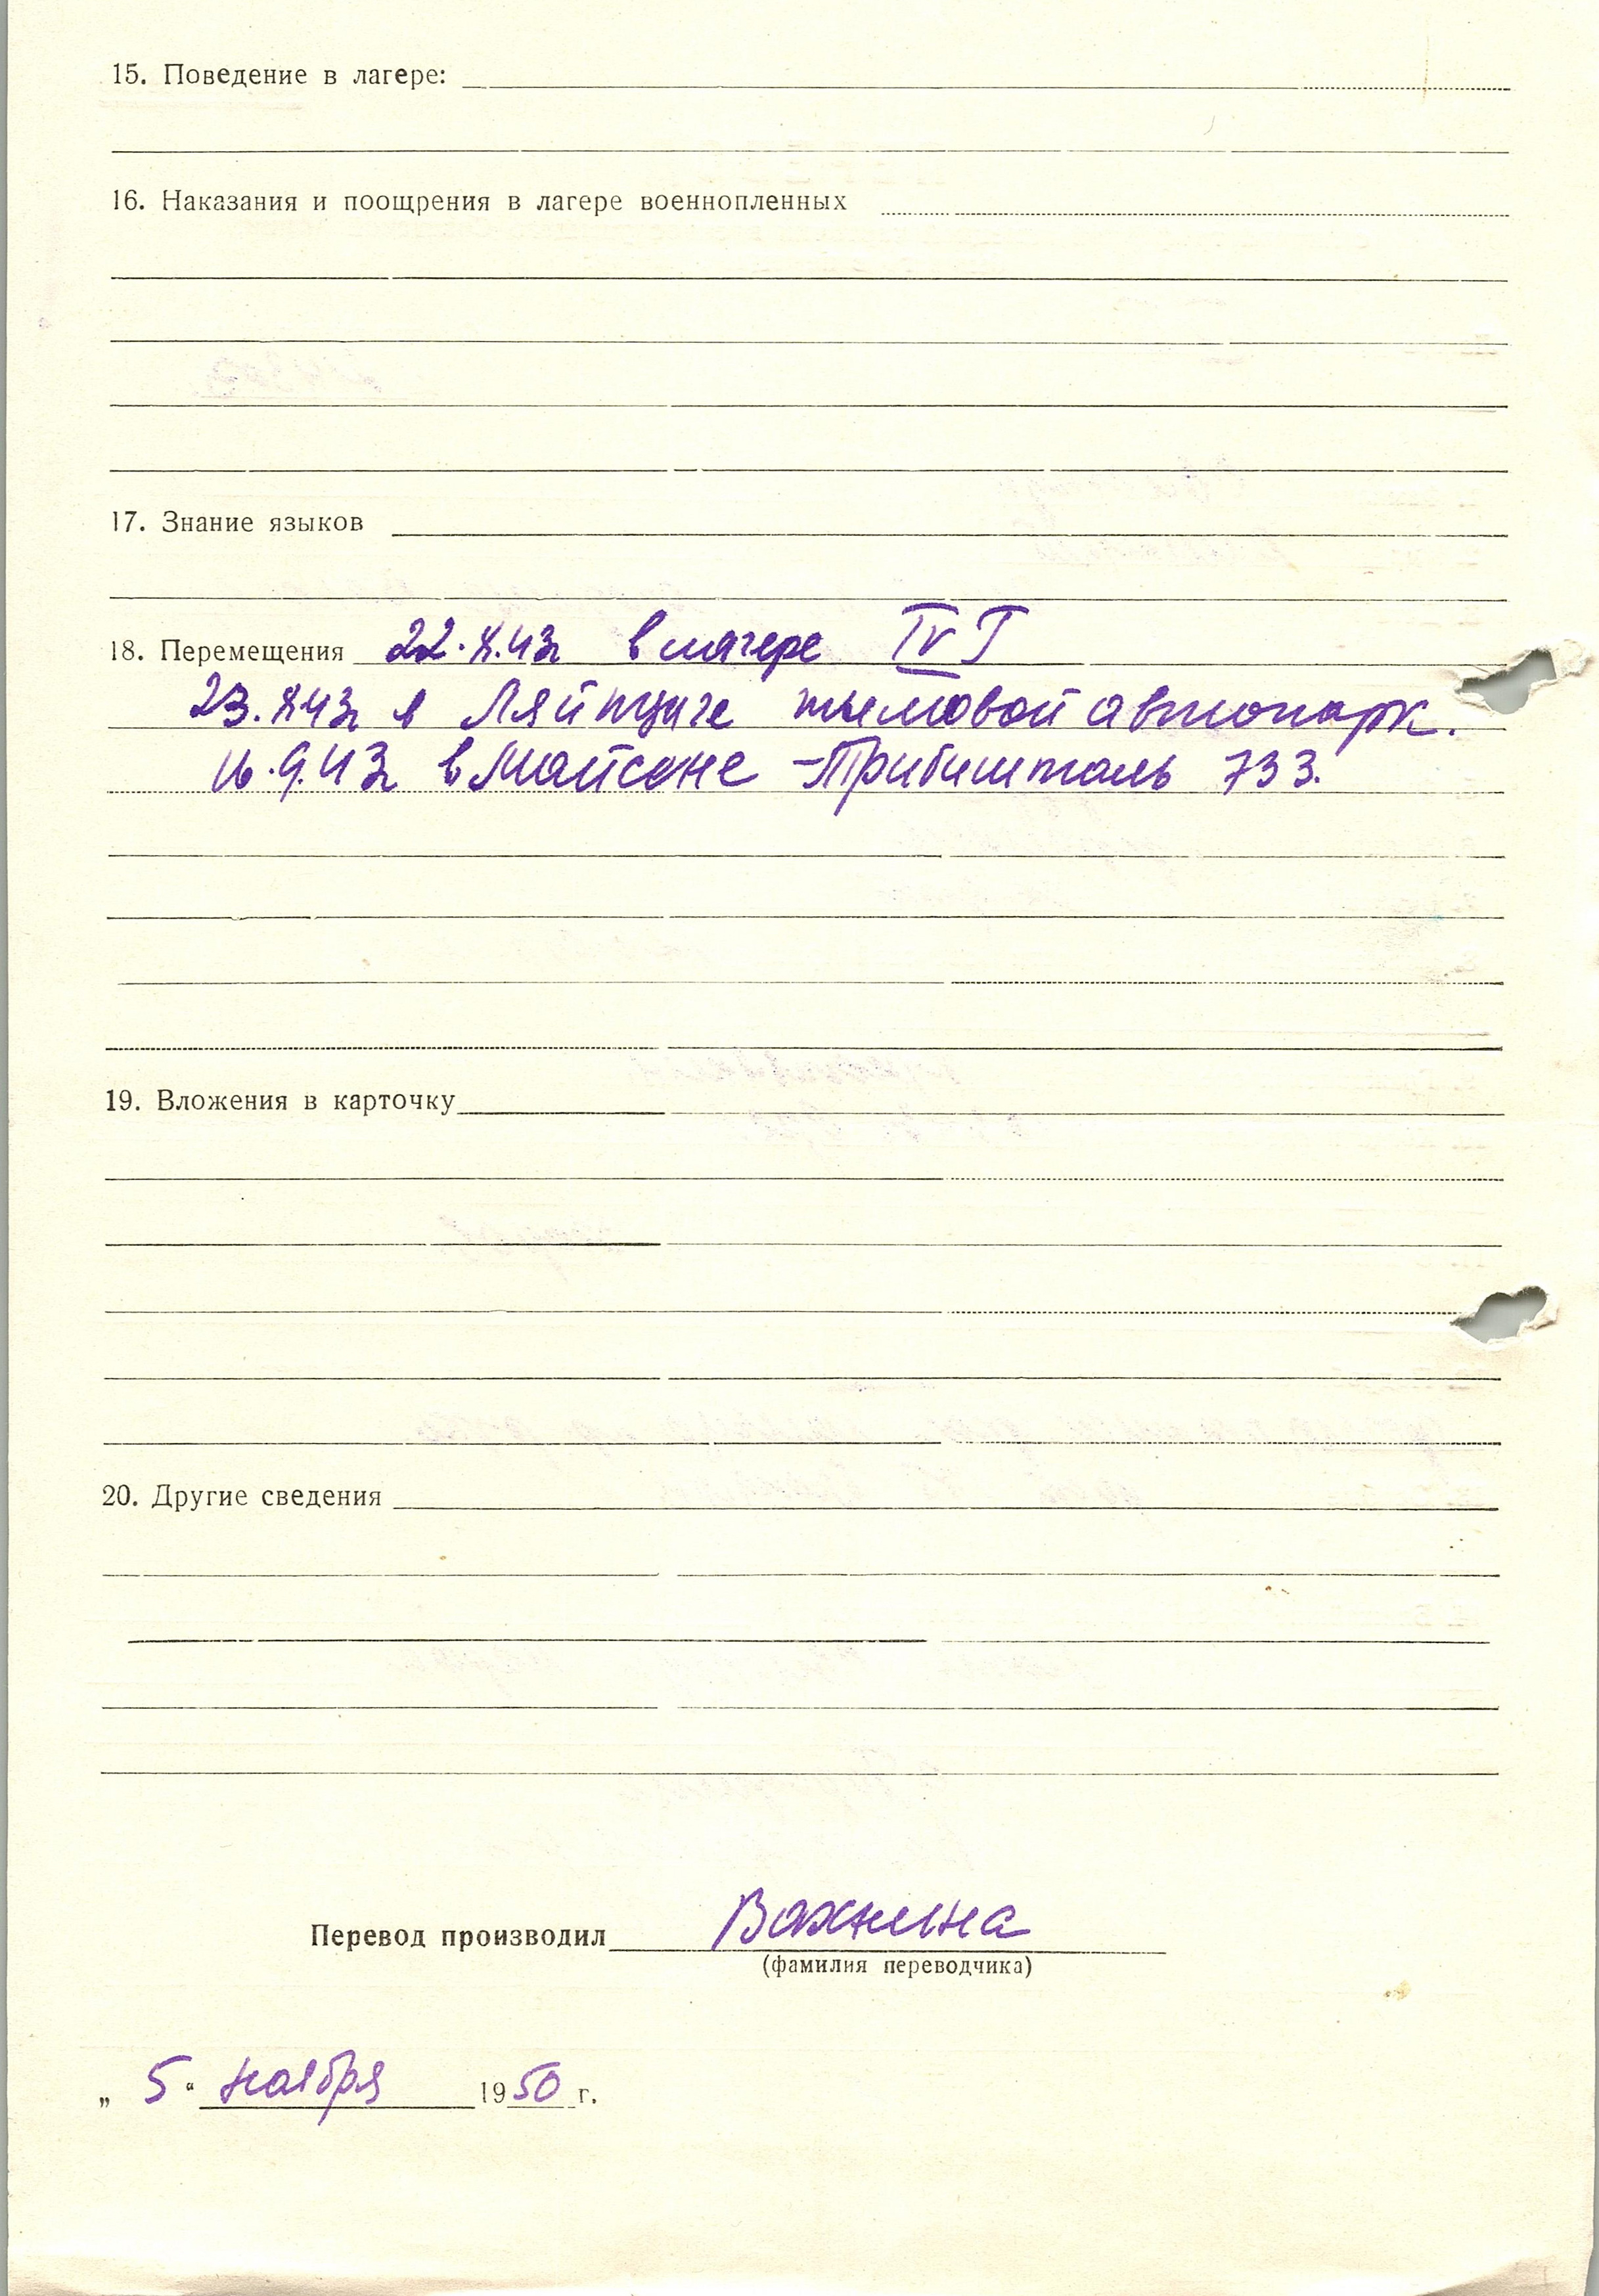 15. Поведение в лагере:
16. Наказания и поощрения в лагере военнопленных
17. Знание языков
18. Перемещения 22.X.43г в лагере IV Г
23.X43г в Ляйпциге тыловой автопарк.
16.9.43г в Майсоне - Трибишталь 733.
19. Вложения в карточку
20. Другие сведения
Перевод производил Вахнина
(фамилия переводчика)
„ 5 “ ноября 1950 г.